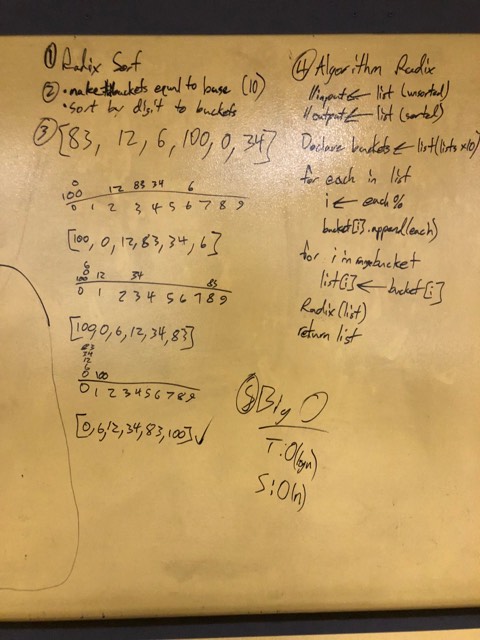 ① Radix Sort
② • make # buckets equal to base (10)
• sort by digit to buckets
③ [83, 12, 6, 100, 0, 34]
0
100 12 83 34 6
0 1 2 3 4 5 6 7 8 9
[100, 0, 12, 83, 34, 6]
6
0
100 12 34 83
0 1 2 3 4 5 6 7 8 9
[100, 0, 6, 12, 34, 83]
83
34
12
6
0 100
0 1 2 3 4 5 6 7 8 9
[0, 6, 12, 34, 83, 100] ✓
④ Algorithm Radix
//input ← list (unsorted)
//output ← list (sorted)
Declare buckets ← list(lists x10)
for each in list
i ← each %
bucket[i].append(each)
for i in range bucket
list[i] ← bucket[i]
Radix (list)
return list
Big O
T: O(logn)
S: O(n)